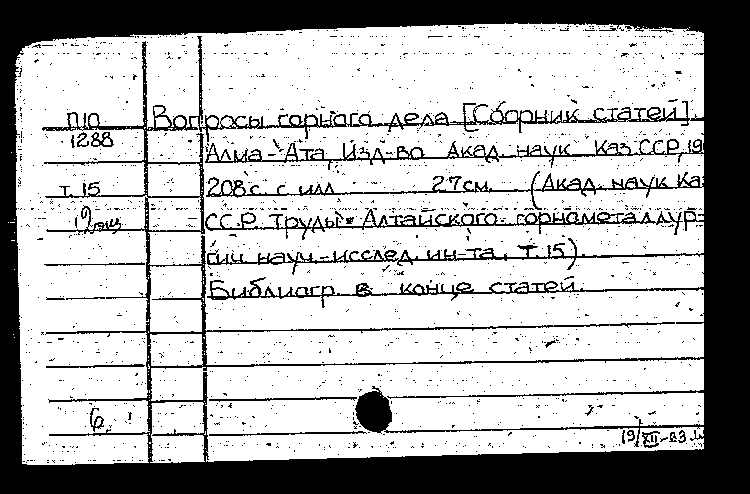 П10 Вопросы горного дела [Сборник статей].
1288
Алма-Ата, Изд-во Акад. наук Каз ССР, 19
т. 15 208 с. с илл 27 см. (Акад. наук Каз
ССР. Труды Алтайского горнометаллур-
гии науч.-исслед. ин-та, т. 15).
Библиогр. в конце статей.
19/XII-83